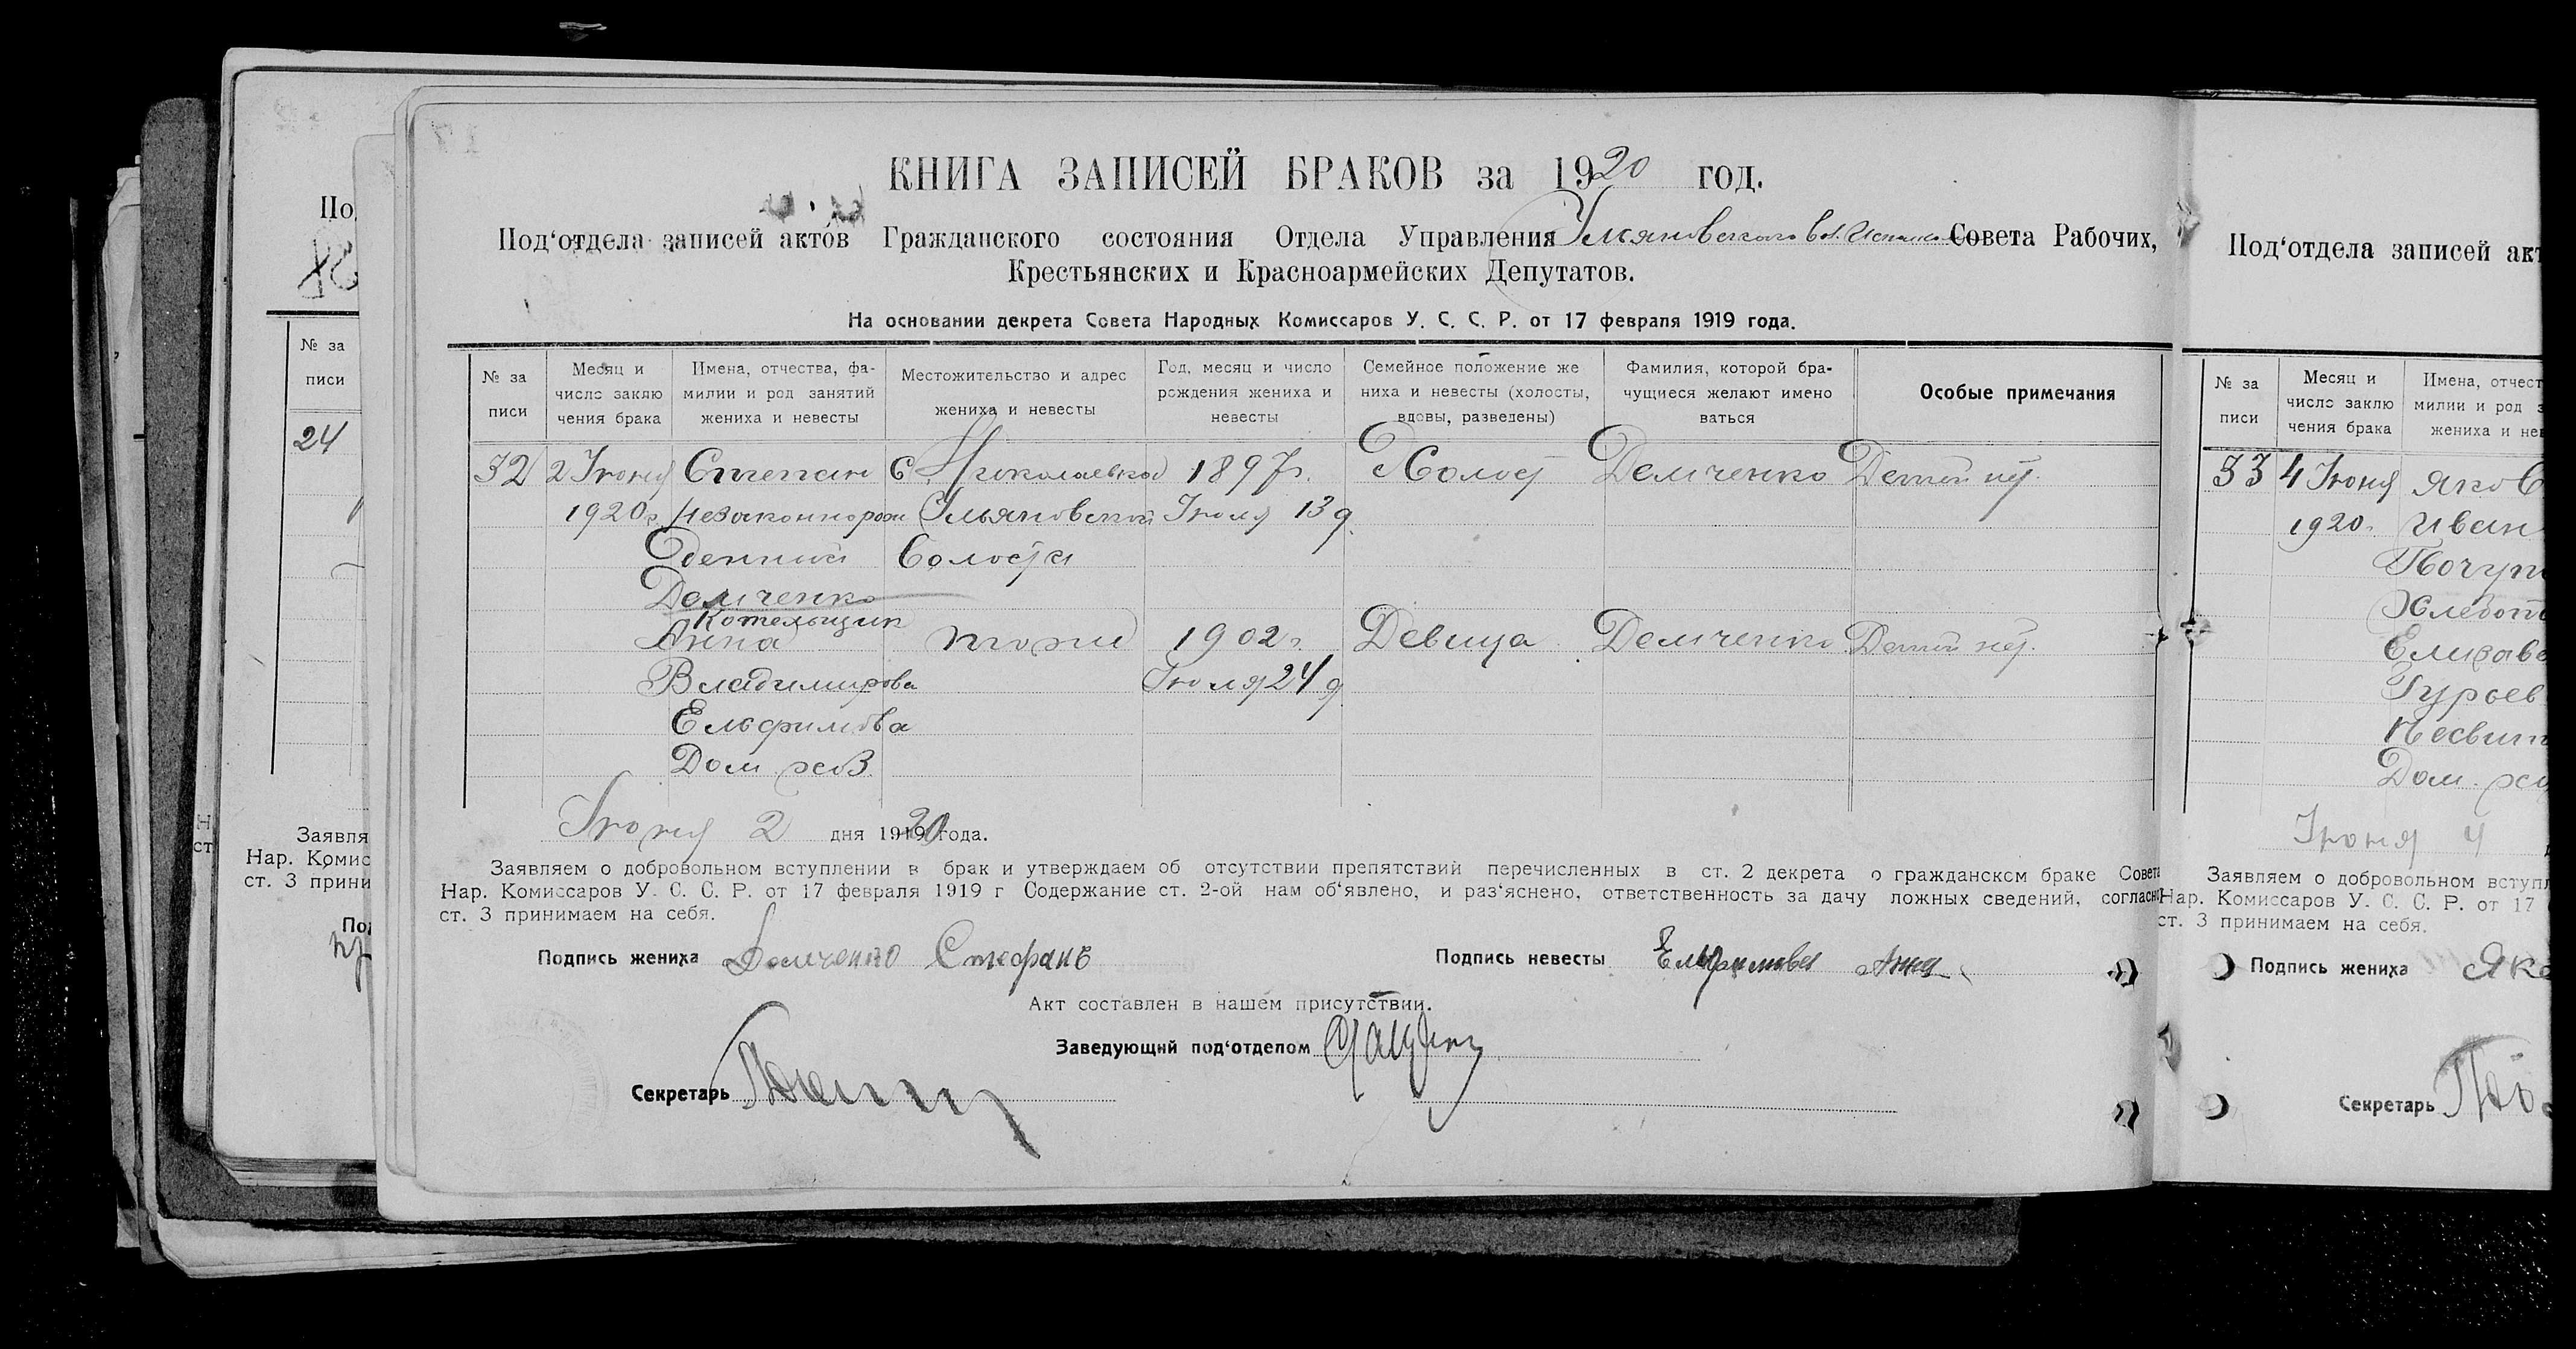 КНИГА ЗАПИСЕЙ БРАКОВ за 1920 год.
Под‘отдела записей актов Гражданского состояния Отдела Управления Ульяновского Вол. Совета Рабочих,
Крестьянских и Красноармейских Депутатов.
На основании декрета Совета Народных Комиссаров У. С. С. Р. от 17 февраля 1919 года.
№ за писи
Месяц и число заклю чения брака
Имена, отчества, фа- милии и род занятий жениха и невесты
Местожительство и адрес жениха и невесты
Год, месяц и число рождения жениха и невесты
Семейное положение же ниха и невесты (холосты, вдовы, разведены)
Фамилия, которой бра- чущиеся желают имено ваться
Особые примечания
32 2 Июня Степан с. Николаевка 1897г. Холост Демченко Детей нет.
1920г. Незаконнорож Ульяновской Июля 13 д.
денный Волости
Демченко
Котельщик
Анна тоже 1902г. Девица Демченко Детей нет.
Владимирова Июля 24 д
Ельфимова
Дом. хоз.
Июня 2 дня 191920 года.
Заявляем о добровольном вступлении в брак и утверждаем об отсутствии препятствий перечисленных в ст. 2 декрета о гражданском браке Совета
Нар. Комиссаров У. С. С. Р. от 17 февраля 1919 г Содержание ст. 2-ой нам об‘явлено, и раз‘яснено, ответственность за дачу ложных сведений, согласно
ст. 3 принимаем на себя.
Подпись жениха Демченко Стефанъ
Подпись невесты Ельфимова Анна
Акт составлен в нашем присутствии.
Заведующий под‘отделом
Секретарь
По
№ за
писи
24
Заявля
Нар. Комис
ст. 3 прини
Под
Под‘отдела записей акт
№ за писи
Месяц и число заклю чения брака
Имена, отчест милии и род з жениха и нев
33 4 Июня Яков
1920г. Иван
Почуп
Хлебоп
Елизаве
Гурьев
Несвит
Дом. хо
Июня 4
Заявляем о добровольном вступл
Нар. Комиссаров У. С. С. Р. от 17
ст. 3 принимаем на себя.
Подпись жениха Яко
Секретарь